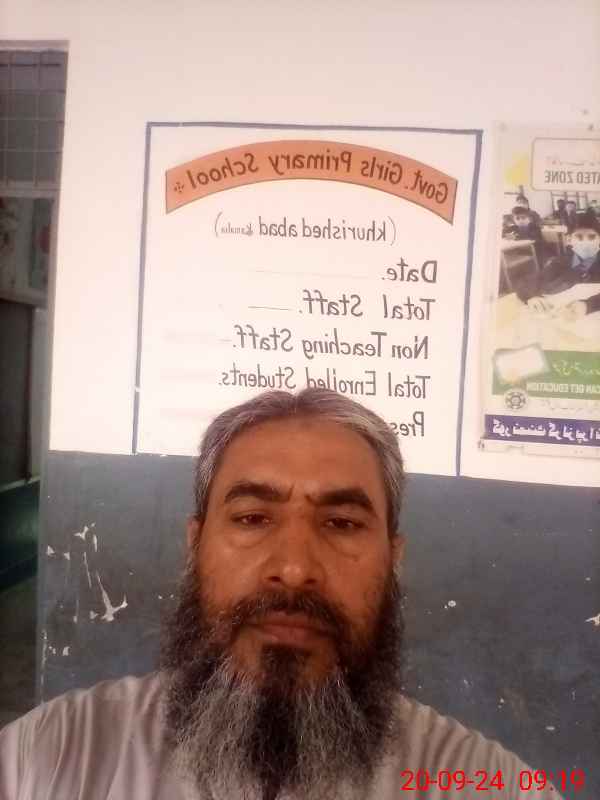 Govt. Girls Primary School
(khurished abad Kamalia)
Date.
Total Staff.
Non Teaching Staff.
Total Enrolled Students.
ATED ZONE
CAN GET EDUCATION
20-09-24 09:19